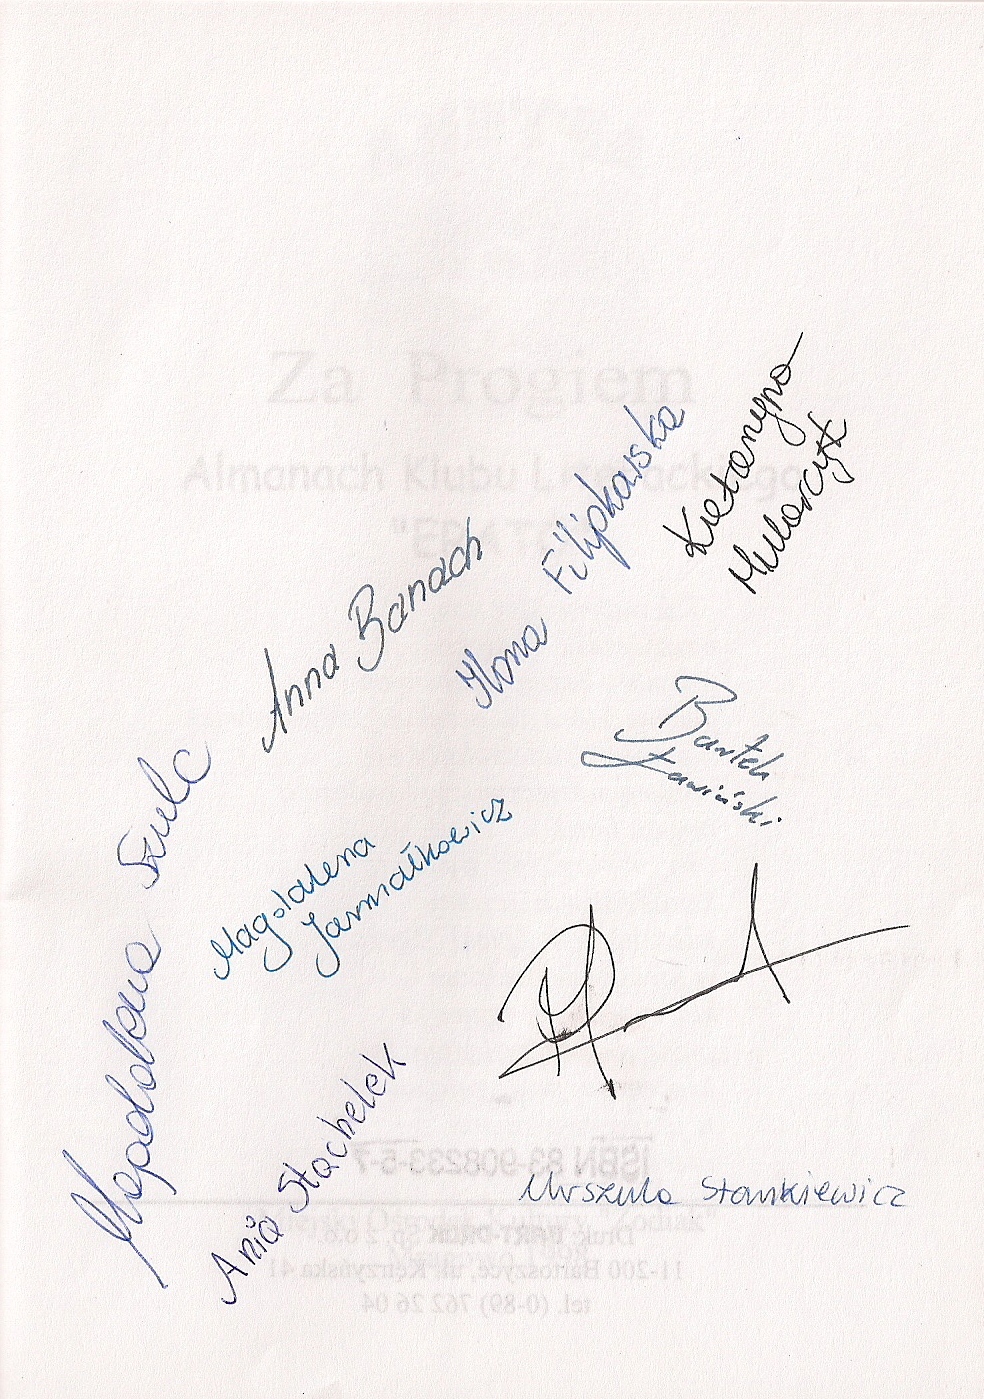 Za Progiem
Almanach Klubu Literackiego
"ERATO"
Katarzyna
Mularczyk
Ilona Filipkowska
Anna Banach
Bartek
Ławiński
Magdalena Szulc
Magdalena
Jarmałkowicz
Ania Stachelek
Urszula Stankiewicz
ISBN 83-908233-5-7
Druk: BART-DRUK Sp. z o.o.
11-200 Bartoszyce, ul. Kętrzyńska 41
tel. (0-89) 762 26 04